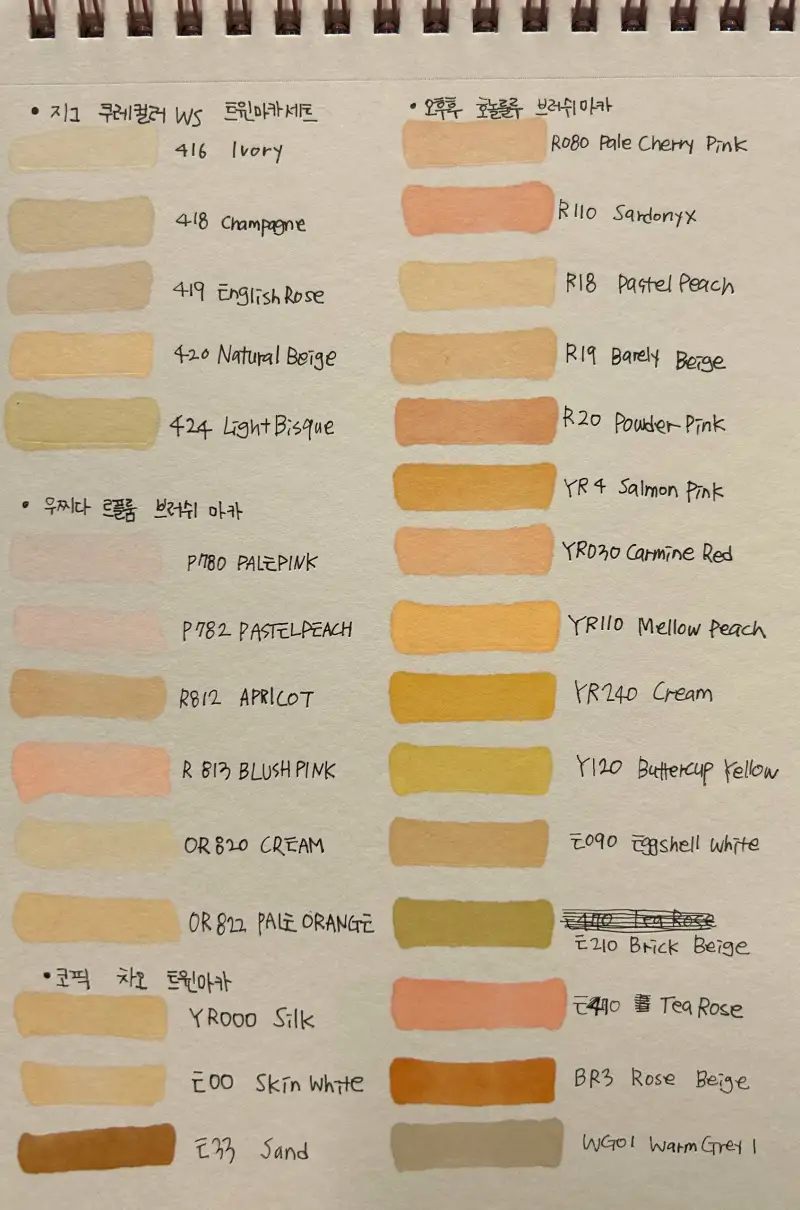 • 지그 쿠레컬러 WS 트윈마카세트
416 Ivory
418 Champagne
419 English Rose
420 Natural Beige
424 Light Bisque
• 우찌다 르플룸 브러쉬 마카
P780 PALEPINK
P782 PASTELPEACH
R812 APRICOT
R 813 BLUSH PINK
OR820 CREAM
OR822 PALE ORANGE
• 코픽 차오 트윈마카
YR000 Silk
E00 Skin White
E33 Sand
• 오후후 호놀룰루 브러쉬마카
R080 Pale Cherry Pink
R110 Sardonyx
R18 Pastel Peach
R19 Barely Beige
R20 Powder Pink
YR4 Salmon Pink
YR030 Carmine Red
YR110 Mellow Peach
YR240 Cream
Y120 Buttercup Yellow
E090 Eggshell White
Tea Rose
E210 Brick Beige
Tea Rose
BR3 Rose Beige
WG01 Warm Grey 1